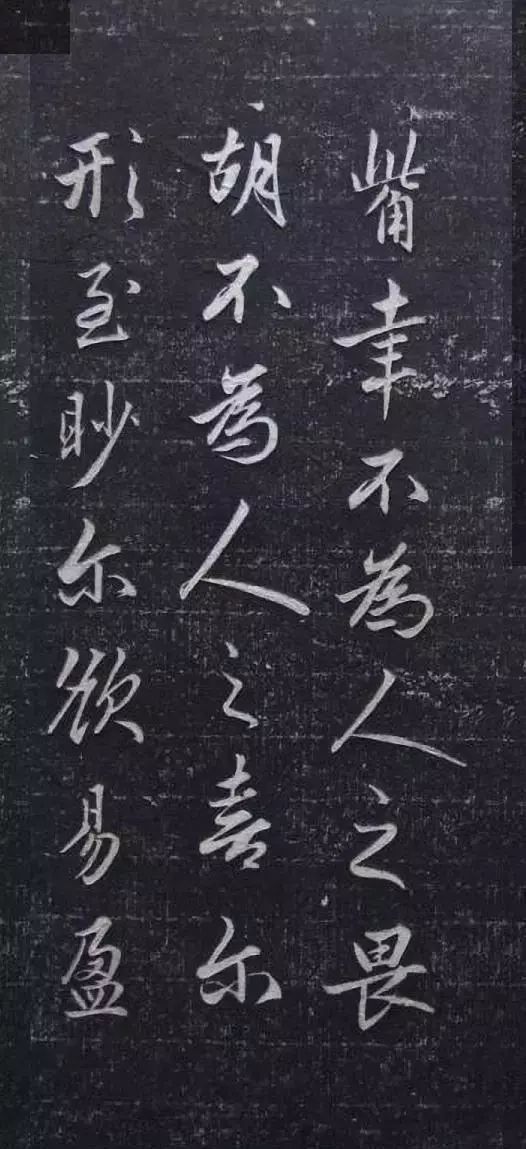 觜幸不为人之畏
胡不为人之喜尔
形至眇尔欲易盈